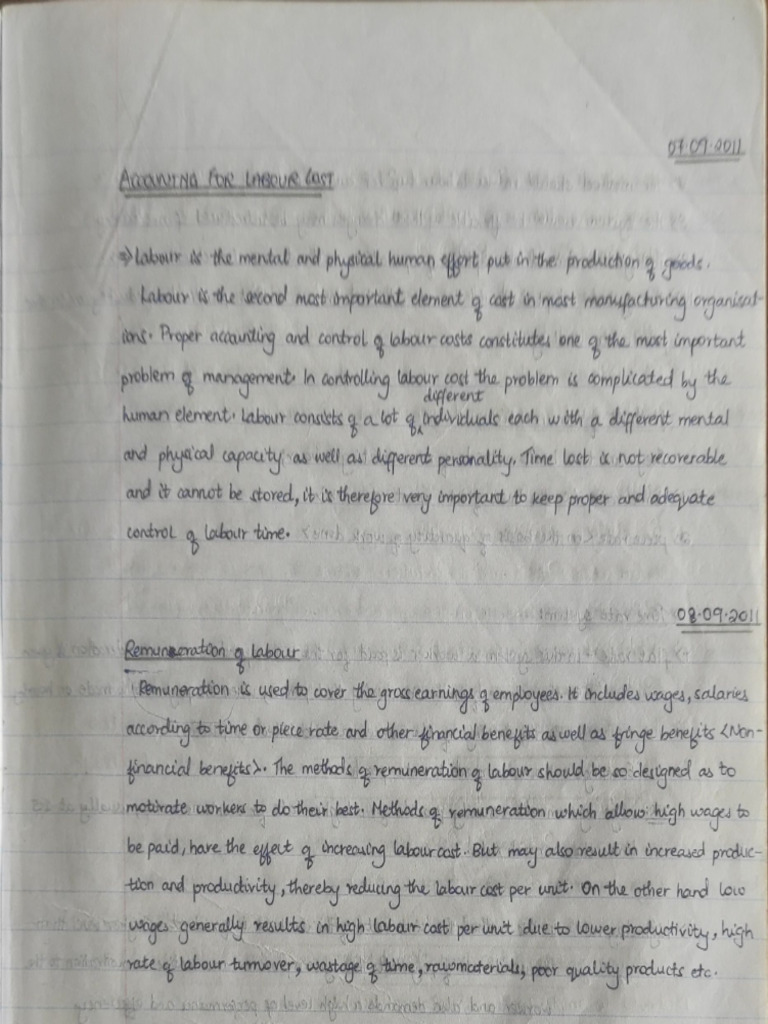 07.09.2011
ACCOUNTING FOR LABOUR COST
⇒ Labour is the mental and physical human effort put in the production of goods.
Labour is the second most important element of cost in most manufacturing organisat-
ions. Proper accounting and control of labour costs constitutes one of the most important
problem of management. In controlling labour cost the problem is complicated by the
different
human element. Labour consists of a lot of individuals each with a different mental
and physical capacity as well as different personality. Time lost is not recoverable
and it cannot be stored, it is therefore very important to keep proper and adequate
control of labour time.
08.09.2011
Remuneration of labour
Remuneration is used to cover the gross earnings of employees. It includes wages, salaries
according to time or piece rate and other financial benefits as well as fringe benefits <Non-
financial benefits>. The methods of remuneration of labour should be so designed as to
motivate workers to do their best. Methods of remuneration which allow high wages to
be paid, have the effect of increasing labour cost. But may also result in increased produc-
tion and productivity, thereby reducing the labour cost per unit. On the other hand low
wages generally results in high labour cost per unit due to lower productivity, high
rate of labour turnover, wastage of time, raw materials, poor quality products etc.